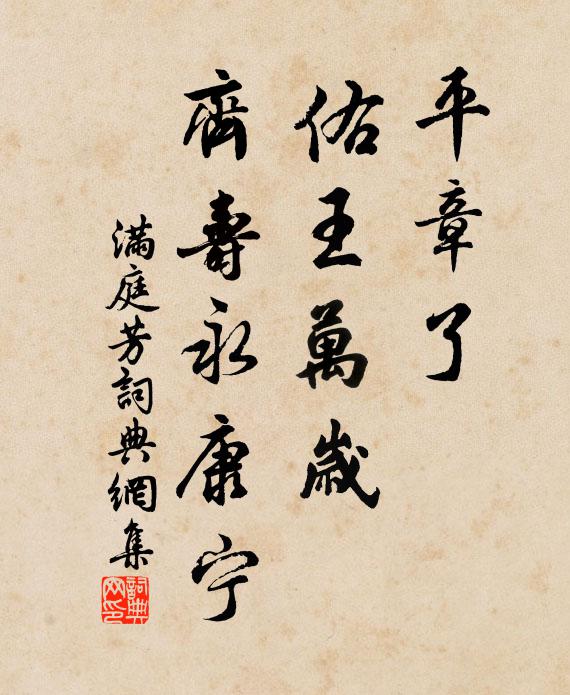 平章了
佑王萬歲
齊壽永康宁
滿庭芳詞典網集
詞典网印